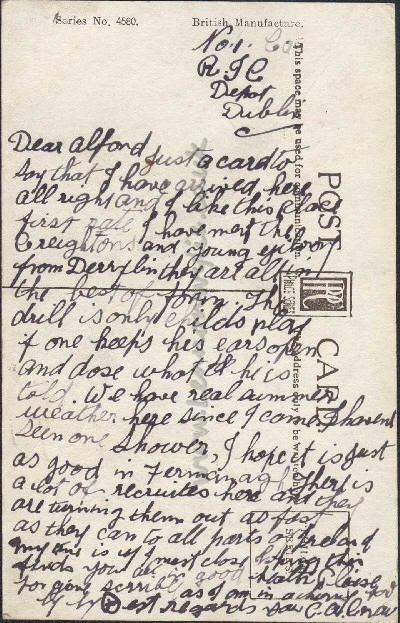 Series No. 4580. British Manufacture.
No 1. Co
R I C
Depot
Dublin
Dear Alford just a card to
say that I have arrived here
all right and I like this place
first rate I have met the
Creightons and young
from Derrylin they are all in
the best of form. The
drill is only childs play
if one keeps his ears open
and dose what he is
told. We have real summer
weather here since I come I havent
seen one shower, I hope it is just
as good in Fermanagh. Ther is
a lot of recruites here and they
are turning them out as fast
as they can to all parts of Ireland
my time is up I must close hoping this
finds you all in good health Please
for give scribble as I am in a hurry
Best regards
POST CARD
This space may be used for communication.